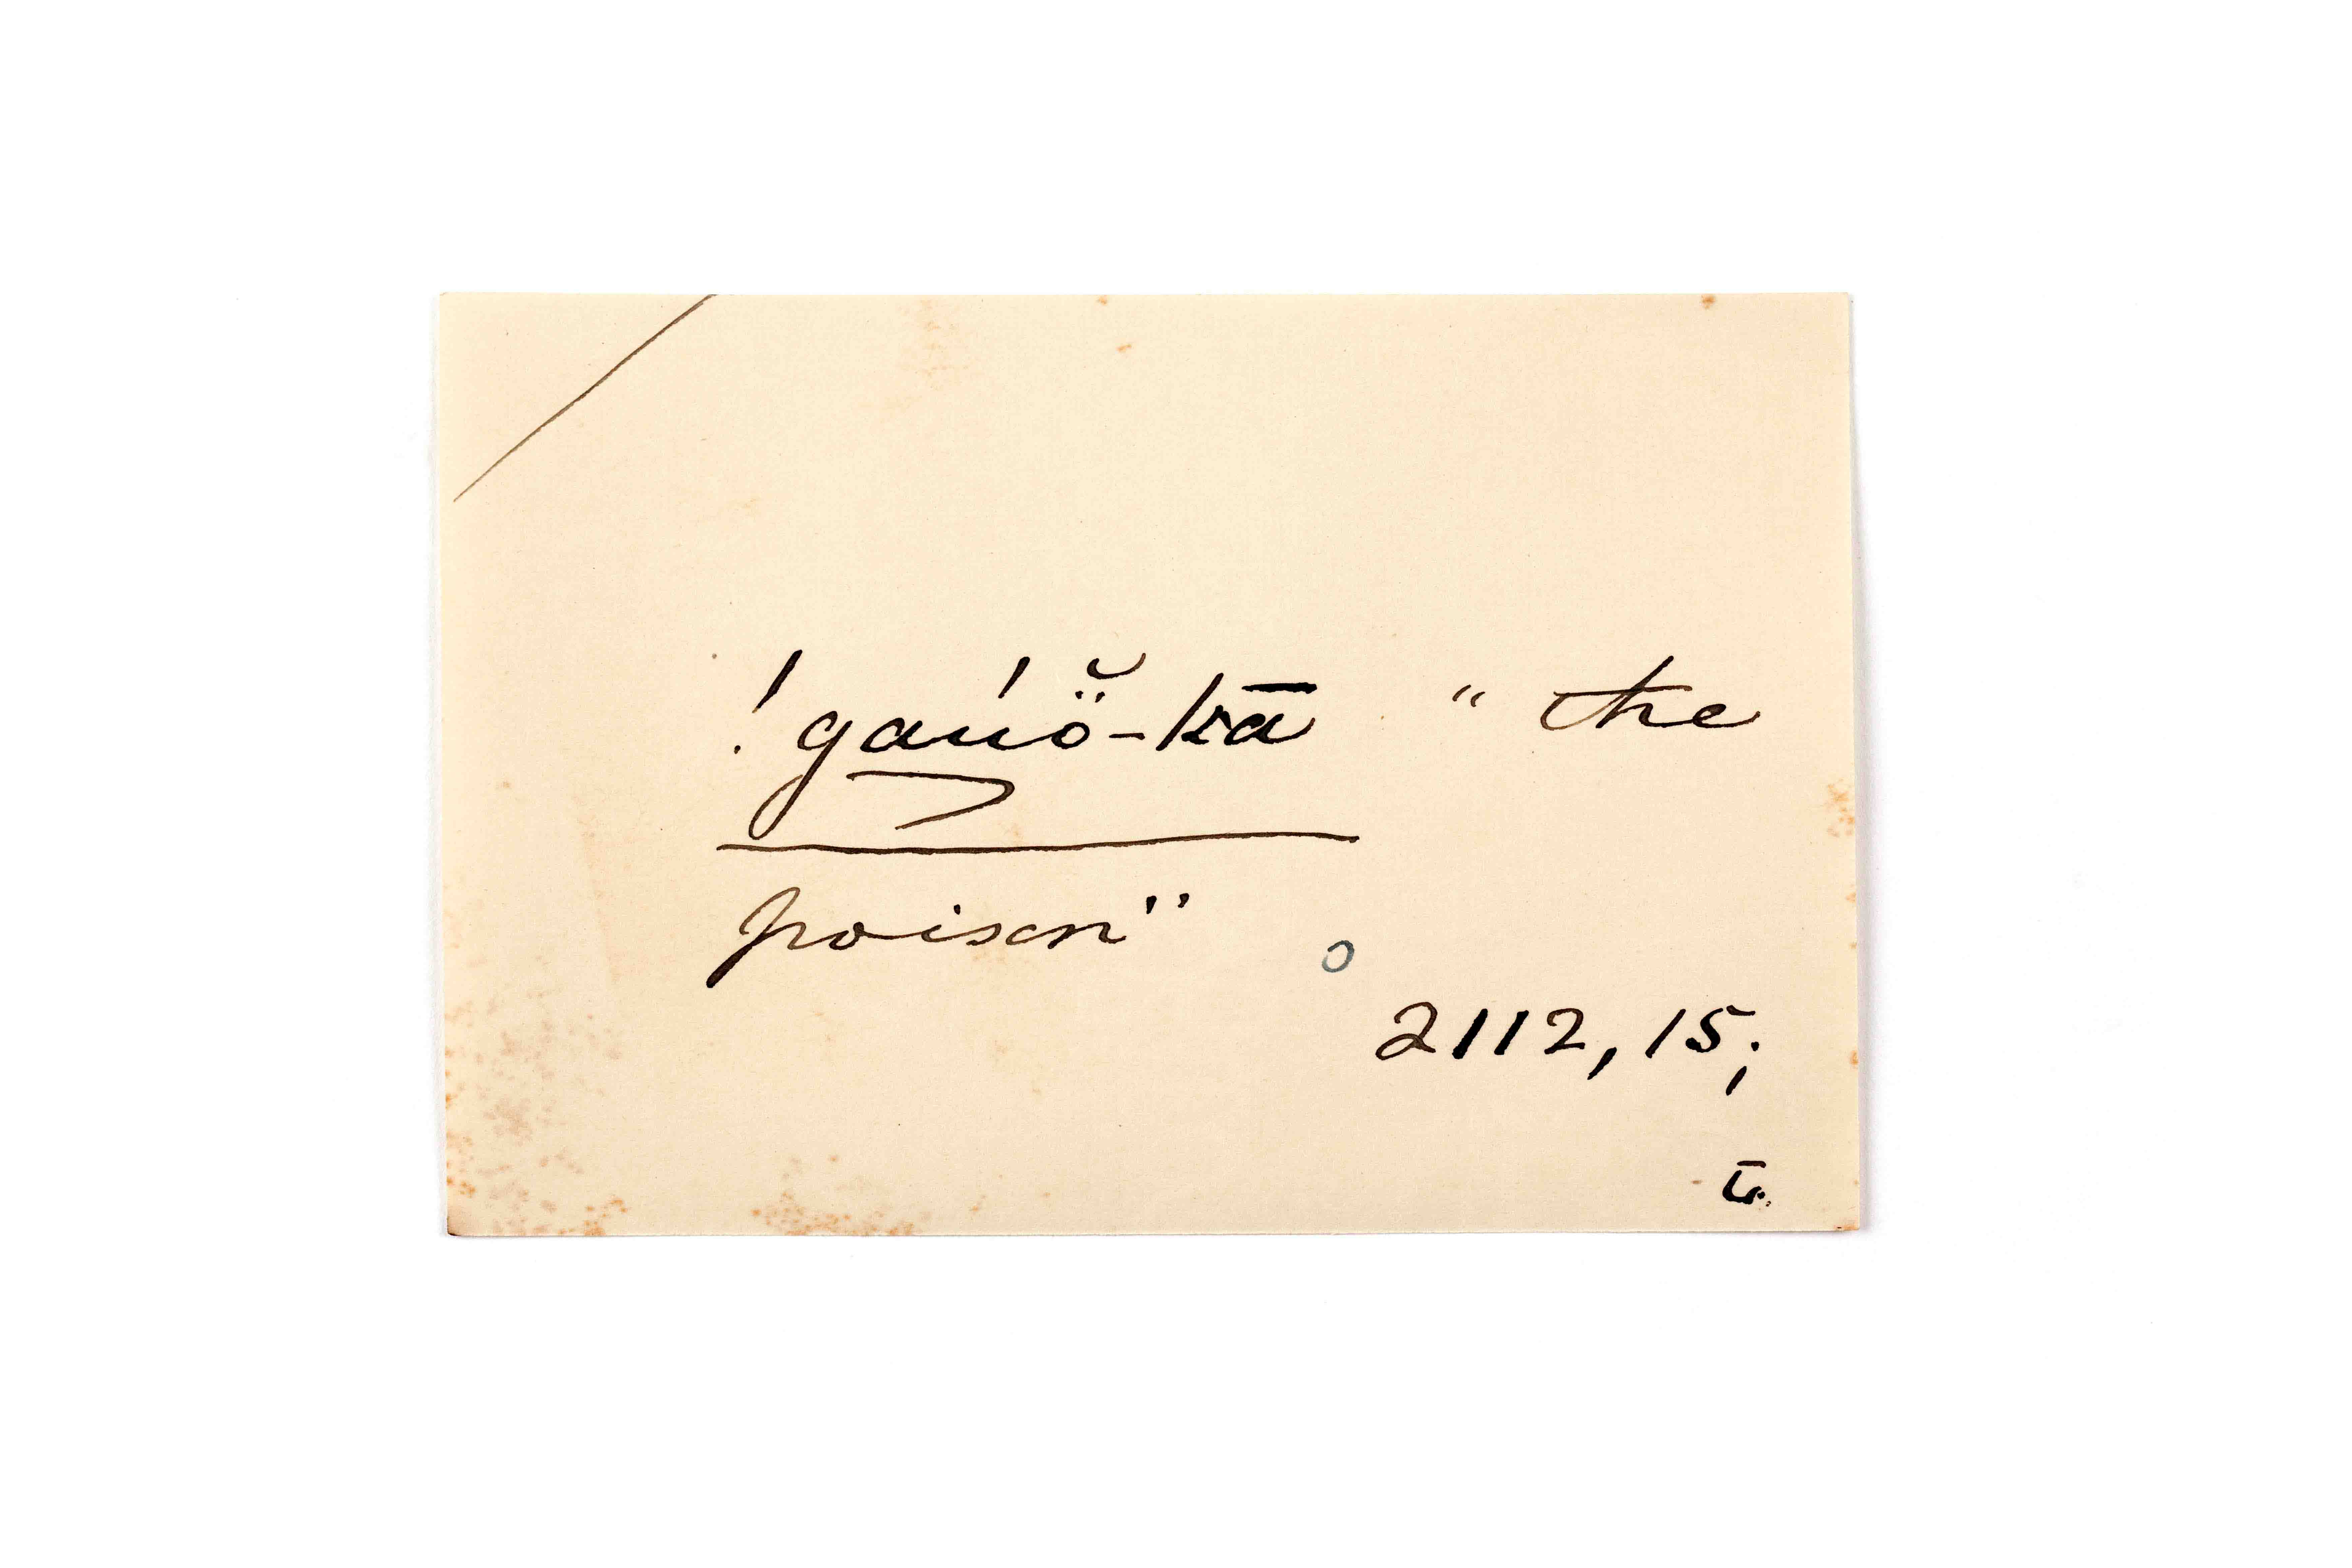 !gaúö̆-kā " the
poison"
2112, 15;